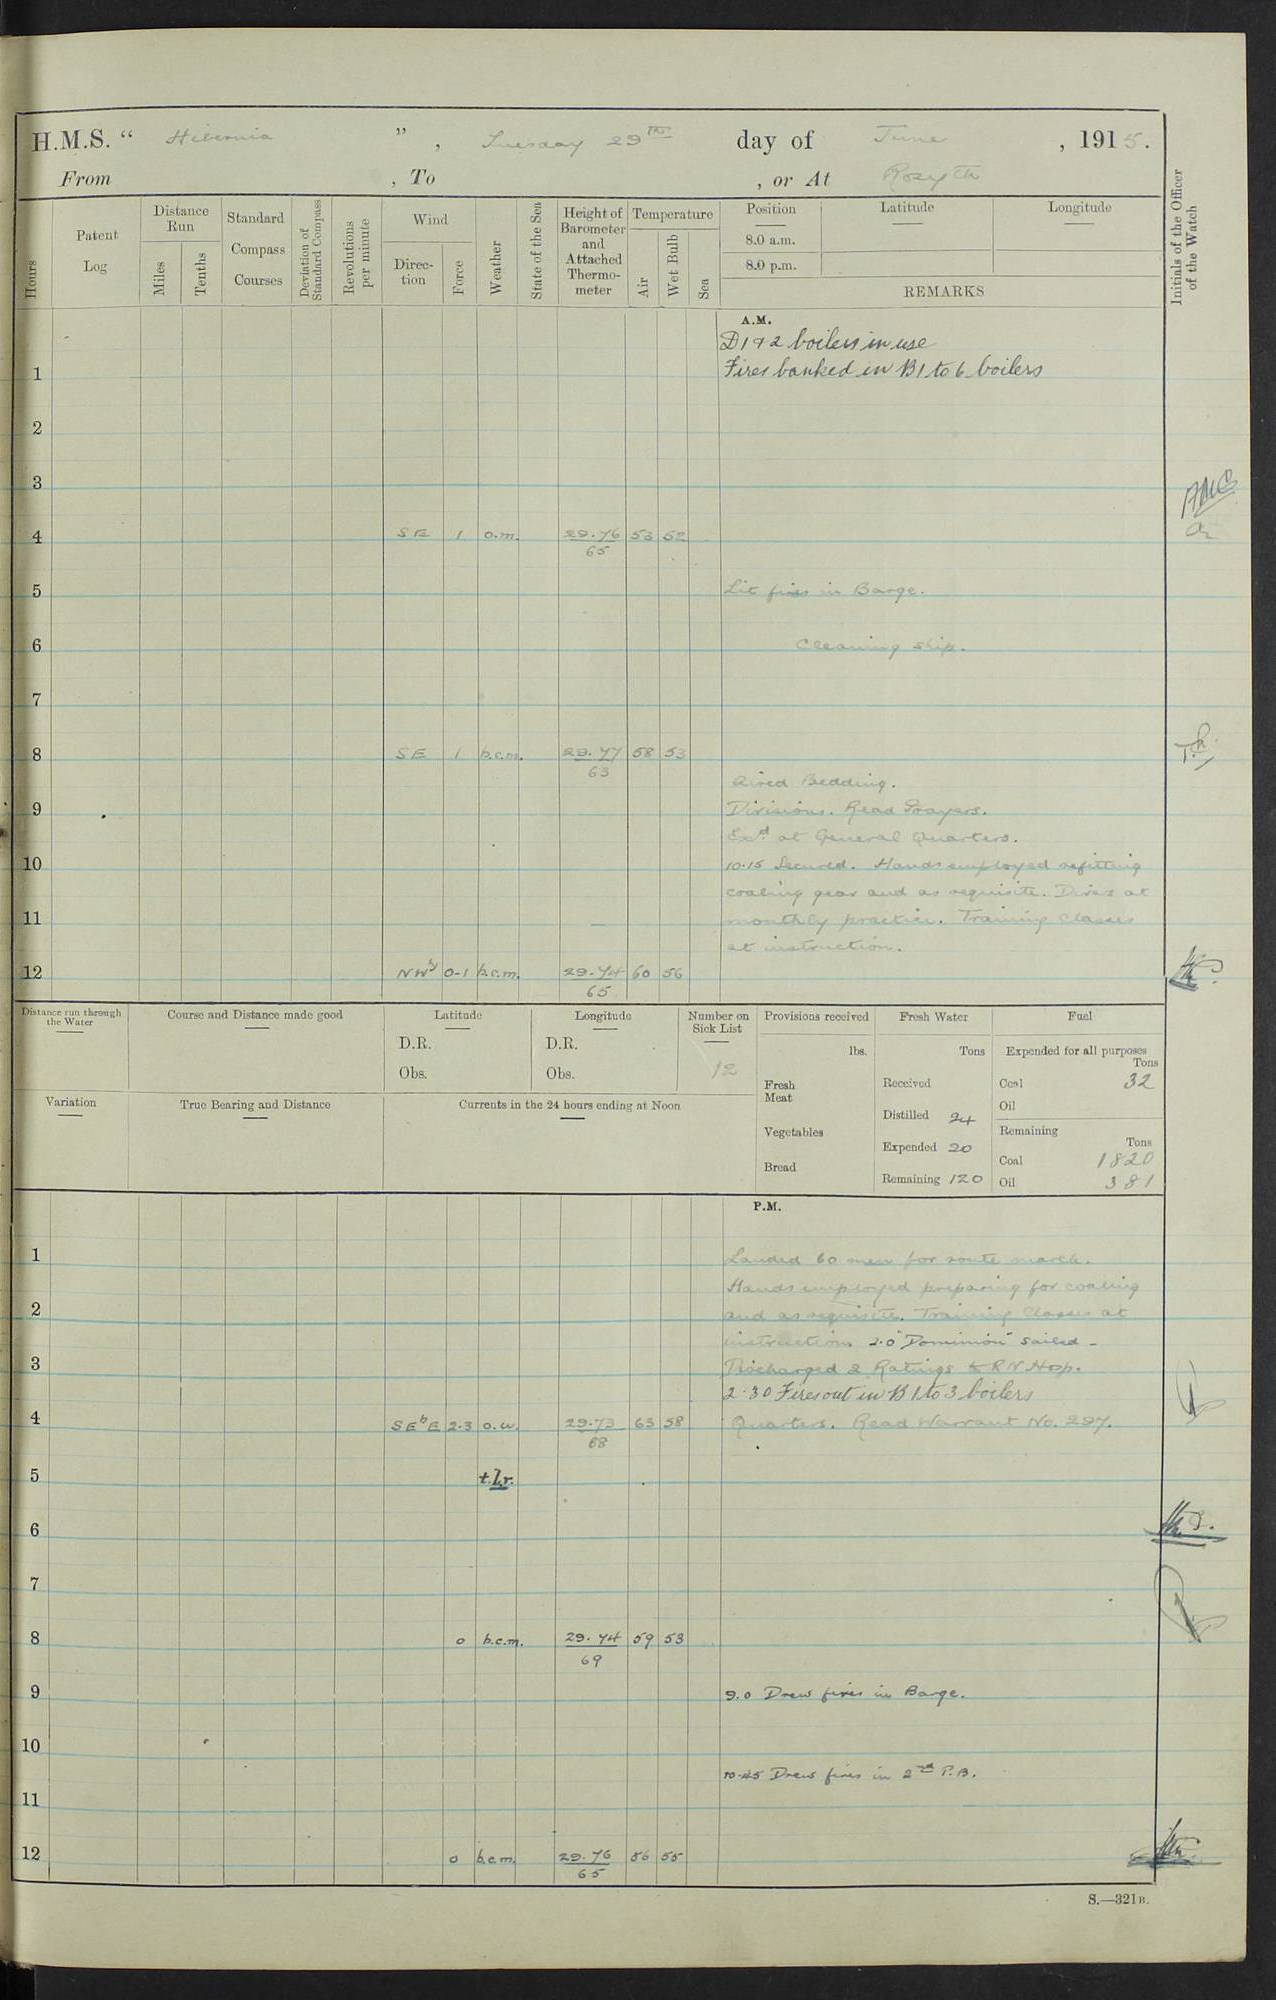 H.M.S. " Hibernia ", Tuesday 29th day of June, 1915.
From , To , or At Rosyth
Hours
Patent Log
Distance Run
Miles
Tenths
Standard Compass Courses
Deviation of Standard Compass
Revolutions per minute
Wind
Direction
Force
Weather
State of the Sea
Height of Barometer and Attached Thermometer
Temperature
Air
Wet Bulb
Sea
Position
8.0 a.m.
8.0 p.m.
Latitude
Longitude
REMARKS
Initials of the Officer of the Watch
A.M.
D 1 & 2 boilers in use
1 Fires banked in B1 to 6 boilers
2
3
AMC
4 SE 1 o.m. 29.76 53 52
65
5 Lit fires in Barge.
6 Cleaning ship.
7
8 SE 1 b.c.m. 29.77 58 53
63
Aired Bedding.
9 Divisions. Read Prayers.
Exd at General Quarters.
10 10.15 Secured. Hands employed refitting
coaling gear and as requisite. Divers at
11 monthly practice. Training Classes
at instruction.
12 NWly 0-1 b.c.m. 29.74 60 56
65
Distance run through the Water
Course and Distance made good
Latitude
D.R.
Obs.
Longitude
D.R.
Obs.
Number on Sick List
12
Provisions received
lbs.
Fresh Meat
Vegetables
Bread
Fresh Water
Tons
Received
Distilled 24
Expended 20
Remaining 120
Fuel
Expended for all purposes
Tons
Coal 32
Oil
Remaining
Tons
Coal 1820
Oil 381
Variation
True Bearing and Distance
Currents in the 24 hours ending at Noon
P.M.
1 Landed 60 men for route march.
Hands employed preparing for coaling
2 and as requisite. Training Classes at
instruction. 2.0 "Dominion" sailed -
3 Discharged 2 Ratings to R N Hosp.
2.30 Fires out in B 1 to 3 boilers
4 SEbE 2.3 o.w. 29.73 63 58 Quarters. Read Warrant No. 297.
68
5 t.l.r.
6
7
8 0 b.c.m. 29.74 59 53
69
9 9.0 Drew fires in Barge.
10
10.45 Drew fires in 2nd P.B.
11
12 0 b.c.m. 29.76 56 55
65
S.—321B.